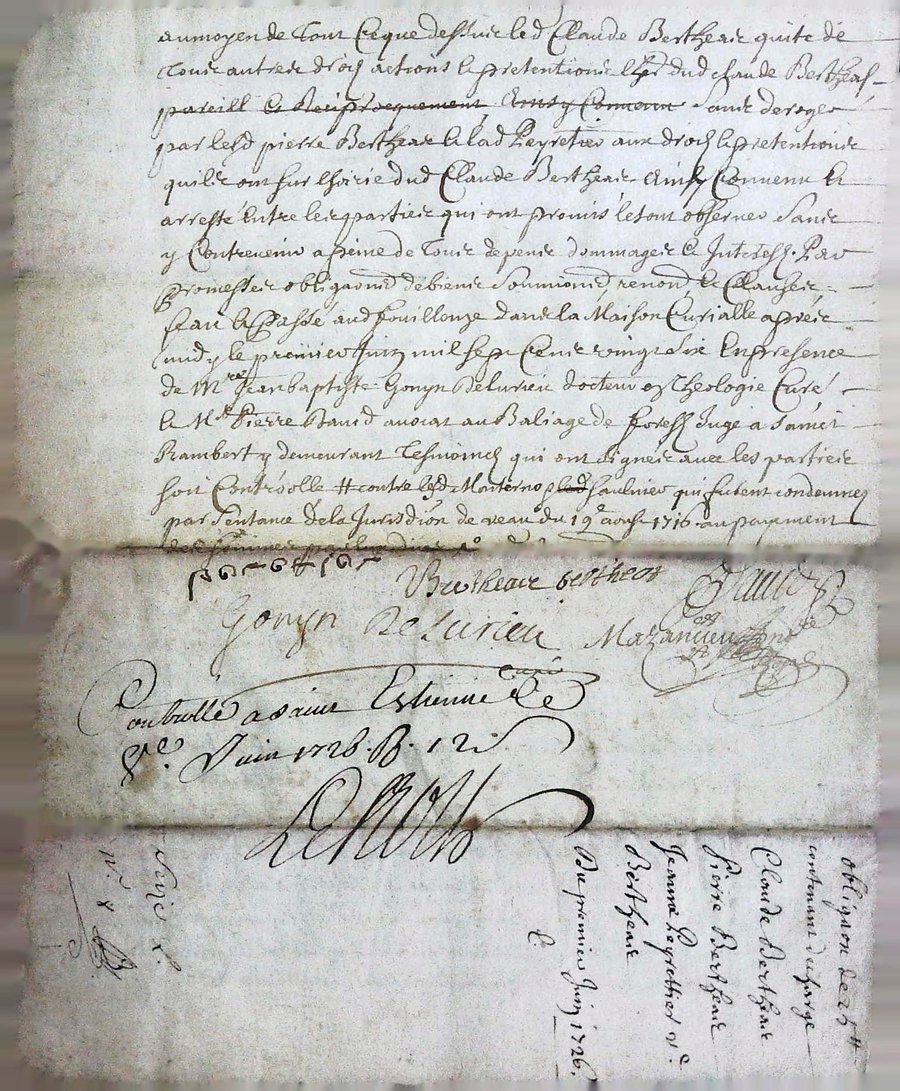 aumoyen de Tout Ceque dessus led Claude Bertheas quite de
Tous autres droitz actions & pretentions lhed dud Claude Bertheas
pareill & Reciprocquement Ainsy Convenu Sans deroger
par lesd pierre Bertheas & lad Peyretier aux droitz & pretentions
quils ont sur lhoirie dud Claude Bertheas Ainsy Convenu &
arresté Entre les parties qui ont promis le tout observer Sans
y Contrevenir a peine de Tous depens dommages & Interestz. Par
promesses obligaond de biens Soumond, renond & Clauses
fait & Passé aud fouillouze dans la Maison Curialle apres
midy le premier Juin mil sept Cens vingt Six En presence
de Mre Jean baptiste Gonyn De Lurieu docteur en Theologie Curé
& Me Pierre David avocat au Baliage de forestz Juge a Sainct
Rambert y demeurant Tesmoins qui ont signés avec les parties
soit Controolle # contre lesd Monterno & led faulnier qui furent condemnes
par Sentance de la Jurisdion de veau du 19e aoust 1716 au payement
Bertheas bertheas David
Gonyn De Lurieu Mazancieu
curé
Controllé a Saint Estienne le
8e. Juin 1726. R. 12 s
Le Roux
obligaon de 25 #
contenant descharge
Claude Bertheas
Pierre Bertheas
Jeanne Peyrettier ve
Bertheas
Du premier Juin 1726.
n.° 8